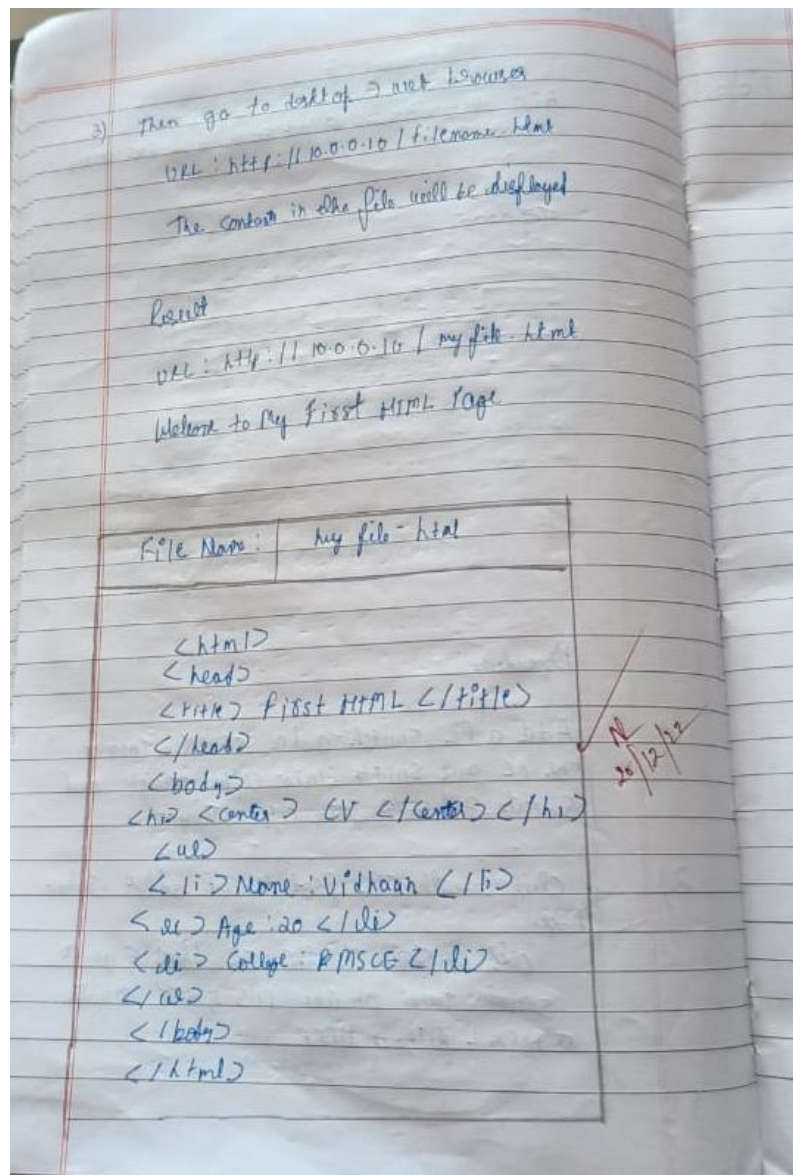 3) Then go to desktop → web browser
URL : http://10.0.0.10/filename.html
The content in the file will be displayed
Result
URL : http://10.0.0.10/myfile.html
Welcome to My First HTML Page
File Name : my file-html
<html>
<head>
<title> First HTML </title>
</head>
<body>
<h1> <center> CV </center> </h1>
<ul>
<li> Name : Vidhaan </li>
<li> Age : 20 </li>
<li> College : BMSCE </li>
</ul>
</body>
</html>
20/12/22